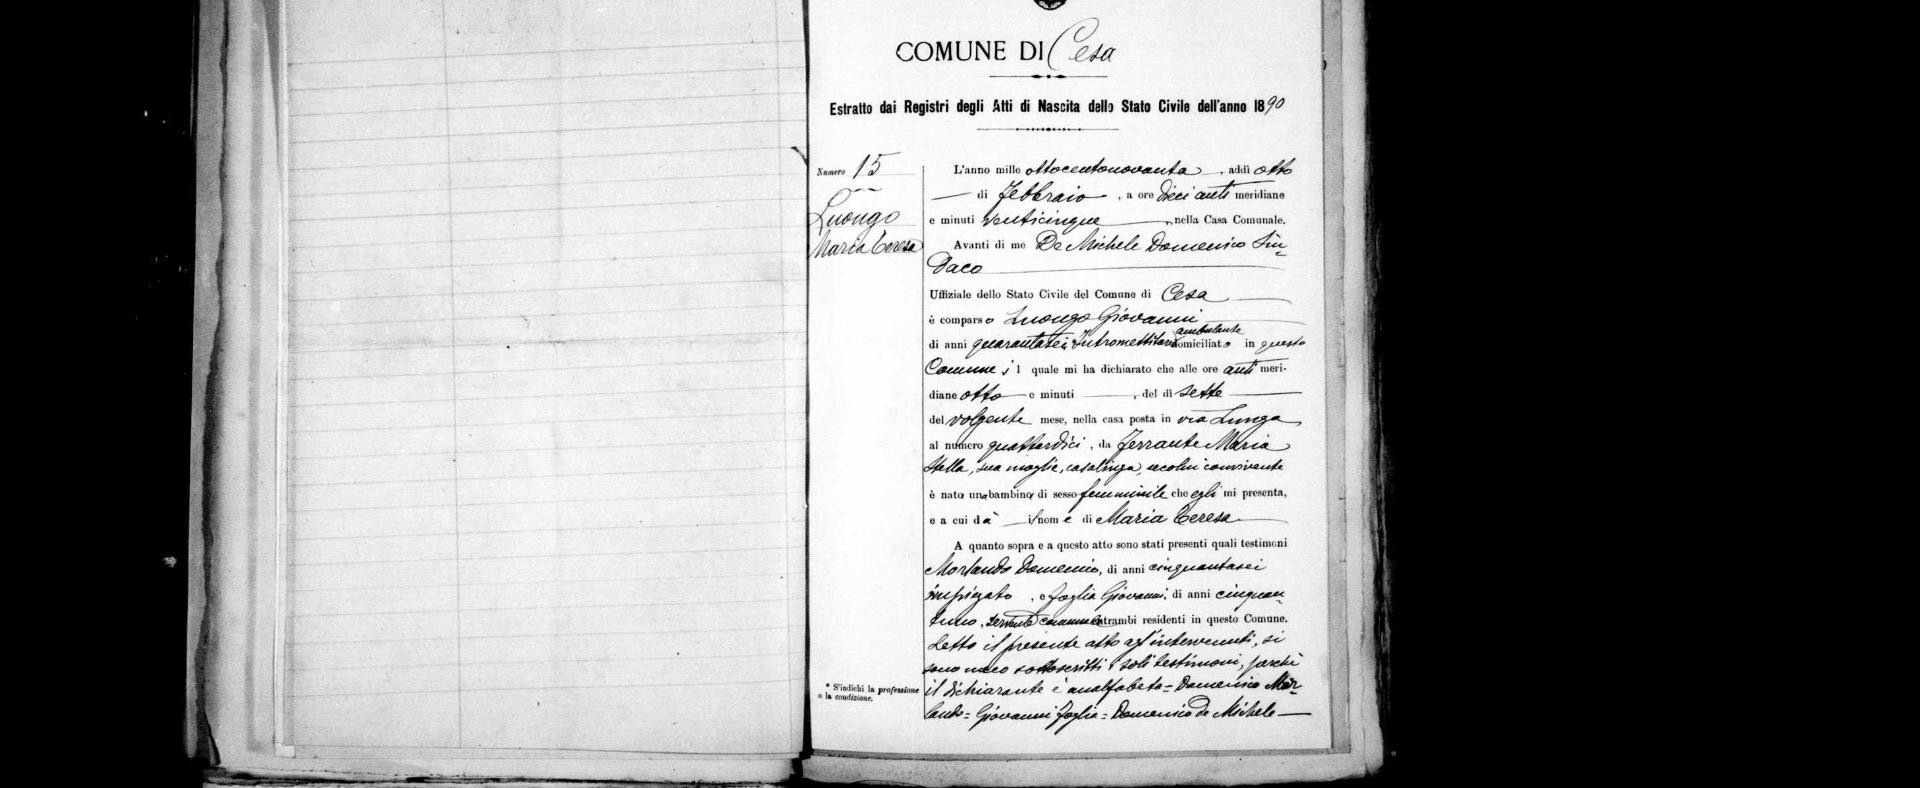 COMUNE DI Cesa
Estratto dai Registri degli Atti di Nascita dello Stato Civile dell'anno 1890
Numero 15
Luongo
Maria Teresa
L'anno mille ottocentonovanta, addì otto
di Febbraio, a ore dieci anti meridiane
e minuti venticinque, nella Casa Comunale.
Avanti di me De Michele Domenico Sin-
daco
Uffiziale dello Stato Civile del Comune di Cesa
è comparso Luongo Giovanni
ambulante
di anni quarantasei, domiciliato in questo
Comune, il quale mi ha dichiarato che alle ore anti meri-
diane otto e minuti, del dì sette
del volgente mese, nella casa posta in via Lunga
al numero quattordici, da Ferrante Maria
Stella, sua moglie, casalinga, seco lui convivente
è nata una bambina di sesso femminile che egli mi presenta,
e a cui dà il nome di Maria Teresa
A quanto sopra e a questo atto sono stati presenti quali testimoni
Morlando Domenico, di anni cinquantasei
impiegato, e Foglia Giovanni, di anni cinquan-
tuno, servente comunale entrambi residenti in questo Comune.
Letto il presente atto agl'intervenuti, si
sono meco sottoscritti i soli testimoni, perchè
il dichiarante è analfabeta = Domenico Mor-
lando = Giovanni Foglia = Domenico de Michele
* S'indichi la professione
o la condizione.